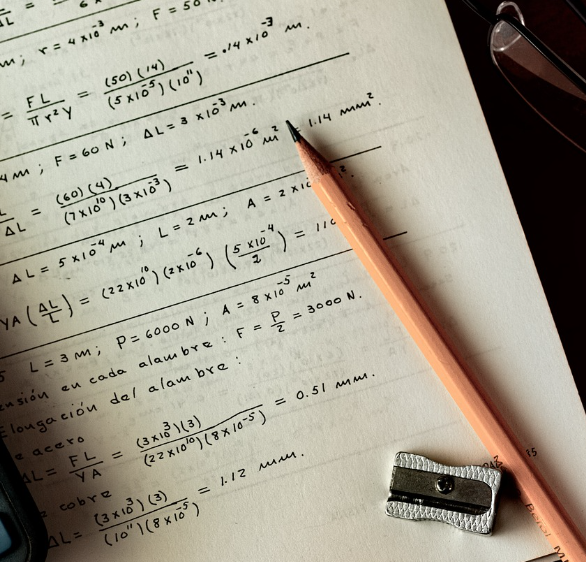 m; r = 4×10⁻³ m; F = 50 N
= FL / πr²Y = (50)(14) / (5×10⁻⁵)(10¹¹) = .14×10⁻³ m.
4m; F = 60 N; ΔL = 3×10⁻³ m.
ΔL = (60)(4) / (7×10¹⁰)(3×10⁻³) = 1.14×10⁻⁶ m² = 1.14 mm².
ΔL = 5×10⁻⁴ m; L = 2m; A = 2×10
YA (ΔL / L) = (22×10¹⁰)(2×10⁻⁶) (5×10⁻⁴ / 2) = 11
5 L = 3 m; P = 6000 N; A = 8×10⁻⁵ m²
ensión en cada alambre: F = P / 2 = 3000 N.
Elongación del alambre:
e acero
ΔL = FL / YA = (3×10³)(3) / (22×10¹⁰)(8×10⁻⁵) = 0.51 mm.
cobre
ΔL = (3×10³)(3) / (10¹¹)(8×10⁻⁵) = 1.12 mm.